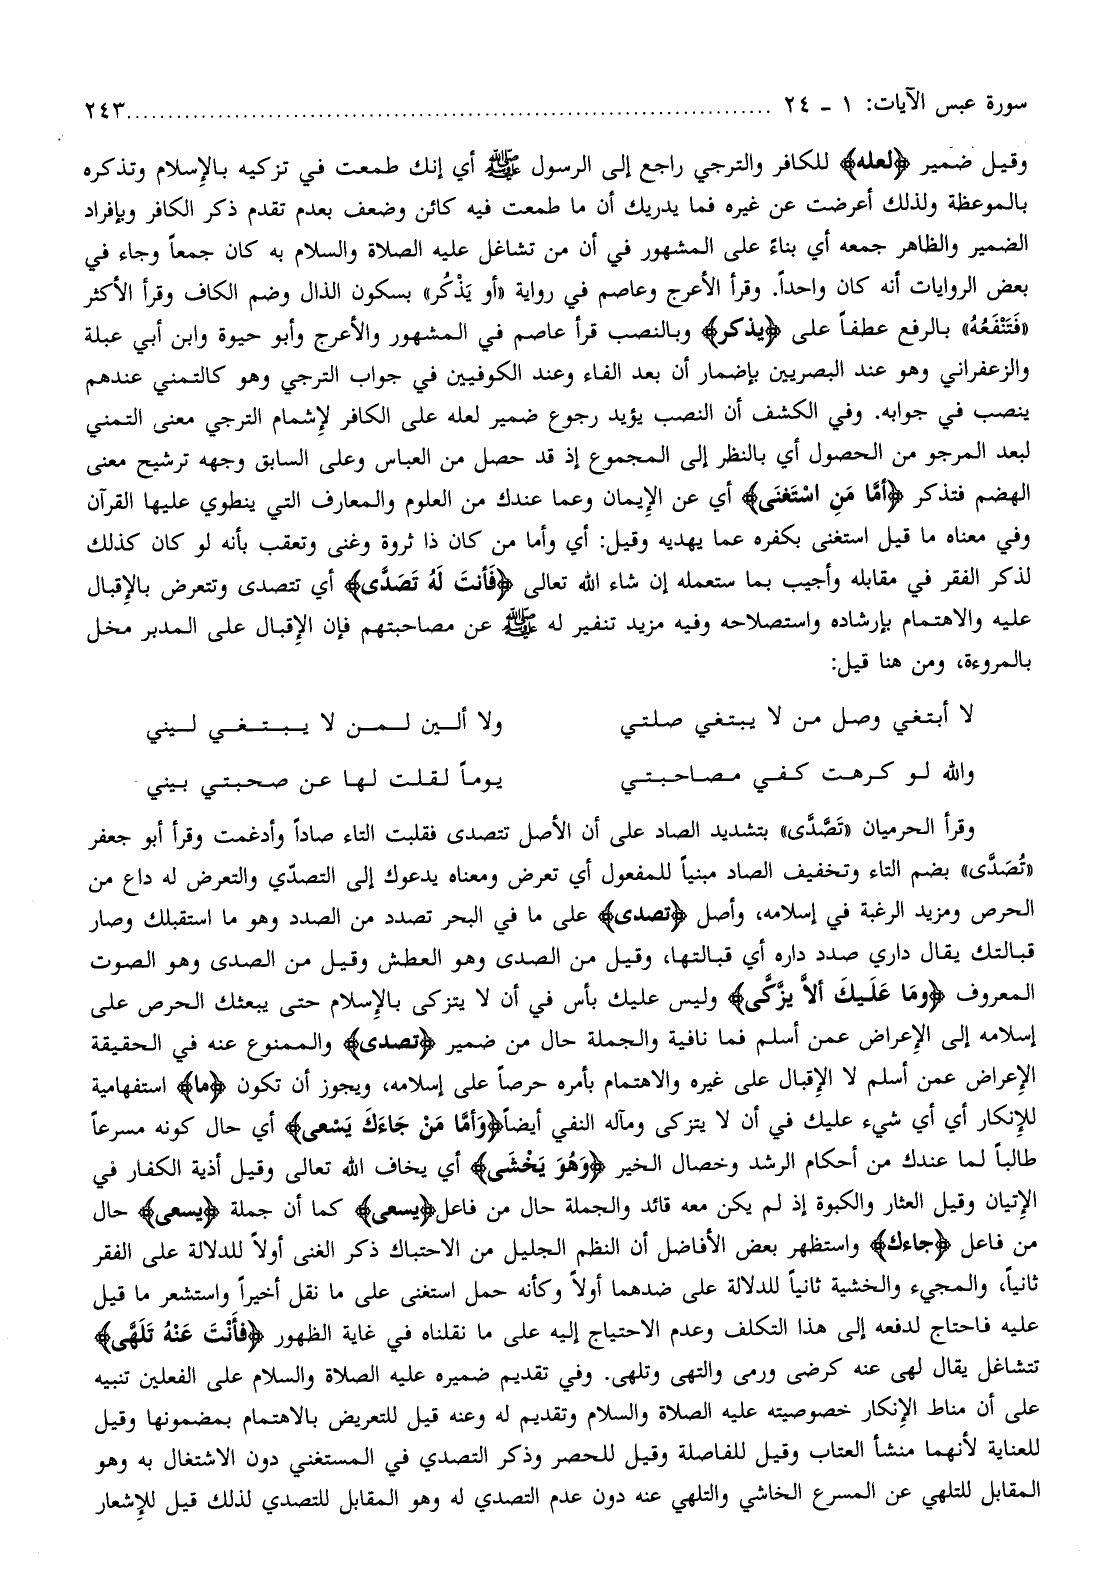 سورة عبس الآيات: ١ - ٢٤ ........................................ ٢٤٣
وقيل ضمير ﴿لعله﴾ للكافر والترجي راجع إلى الرسول ﷺ أي إنك طمعت في تزكيه بالإسلام وتذكره
بالموعظة ولذلك أعرضت عن غيره فما يدريك أن ما طمعت فيه كائن وضعف بعدم تقدم ذكر الكافر وبإفراد
الضمير والظاهر جمعه أي بناءً على المشهور في أن من تشاغل عليه الصلاة والسلام به كان جمعاً وجاء في
بعض الروايات أنه كان واحداً. وقرأ الأعرج وعاصم في رواية «أو يَذْكُر» بسكون الذال وضم الكاف وقرأ الأكثر
«فَتَنْفَعُهُ» بالرفع عطفاً على ﴿يذكر﴾ وبالنصب قرأ عاصم في المشهور والأعرج وأبو حيوة وابن أبي عبلة
والزعفراني وهو عند البصريين بإضمار أن بعد الفاء وعند الكوفيين في جواب الترجي وهو كالتمني عندهم
ينصب في جوابه. وفي الكشف أن النصب يؤيد رجوع ضمير لعله على الكافر لإشمام الترجي معنى التمني
لبعد المرجو من الحصول أي بالنظر إلى المجموع إذ قد حصل من العباس وعلى السابق وجهه ترشيح معنى
الهضم فتذكر ﴿أمَّا مَنِ اسْتَغنَى﴾ أي عن الإيمان وعما عندك من العلوم والمعارف التي ينطوي عليها القرآن
وفي معناه ما قيل استغنى بكفره عما يهديه وقيل: أي وأما من كان ذا ثروة وغنى وتعقب بأنه لو كان كذلك
لذكر الفقر في مقابله وأجيب بما ستعمله إن شاء الله تعالى ﴿فَأنتَ لَهُ تَصَدَّى﴾ أي تتصدى وتتعرض بالإقبال
عليه والاهتمام بإرشاده واستصلاحه وفيه مزيد تنفير له ﷺ عن مصاحبتهم فإن الإقبال على المدبر مخل
بالمروءة، ومن هنا قيل:
لا أبتغي وصل من لا يبتغي صلتي ولا ألين لمن لا يبتغي ليني
والله لو كرهت كفي مصاحبتي يوماً لقلت لها عن صحبتي بيني
وقرأ الحرميان «تَصَّدَّى» بتشديد الصاد على أن الأصل تتصدى فقلبت التاء صاداً وأدغمت وقرأ أبو جعفر
«تُصَدَّى» بضم التاء وتخفيف الصاد مبنياً للمفعول أي تعرض ومعناه يدعوك إلى التصدّي والتعرض له داع من
الحرص ومزيد الرغبة في إسلامه، وأصل ﴿تصدى﴾ على ما في البحر تصدد من الصدد وهو ما استقبلك وصار
قبالتك يقال داري صدد داره أي قبالتها، وقيل من الصدى وهو العطش وقيل من الصدى وهو الصوت
المعروف ﴿ومَا عَلَيكَ ألاَّ يزَّكَّى﴾ وليس عليك بأس في أن لا يتزكى بالإسلام حتى يبعثك الحرص على
إسلامه إلى الإعراض عمن أسلم فما نافية والجملة حال من ضمير ﴿تصدى﴾ والممنوع عنه في الحقيقة
الإعراض عمن أسلم لا الإقبال على غيره والاهتمام بأمره حرصاً على إسلامه، ويجوز أن تكون ﴿ما﴾ استفهامية
للإنكار أي أي شيء عليك في أن لا يتزكى ومآله النفي أيضاً﴿وَأمَّا مَنْ جَاءَكَ يَسْعى﴾ أي حال كونه مسرعاً
طالباً لما عندك من أحكام الرشد وخصال الخير ﴿وَهُوَ يَخْشَى﴾ أي يخاف الله تعالى وقيل أذية الكفار في
الإتيان وقيل العثار والكبوة إذ لم يكن معه قائد والجملة حال من فاعل﴿يسعى﴾ كما أن جملة ﴿يسعى﴾ حال
من فاعل ﴿جاءك﴾ واستظهر بعض الأفاضل أن النظم الجليل من الاحتباك ذكر الغنى أولاً للدلالة على الفقر
ثانياً، والمجيء والخشية ثانياً للدلالة على ضدهما أولاً وكأنه حمل استغنى على ما نقل أخيراً واستشعر ما قيل
عليه فاحتاج لدفعه إلى هذا التكلف وعدم الاحتياج إليه على ما نقلناه في غاية الظهور ﴿فأَنْتَ عَنْهُ تَلَهَّى﴾
تتشاغل يقال لهى عنه كرضى ورمى والتهى وتلهى. وفي تقديم ضميره عليه الصلاة والسلام على الفعلين تنبيه
على أن مناط الإنكار خصوصيته عليه الصلاة والسلام وتقديم له وعنه قيل للتعريض بالاهتمام بمضمونها وقيل
للعناية لأنهما منشأ العتاب وقيل للفاصلة وقيل للحصر وذكر التصدي في المستغني دون الاشتغال به وهو
المقابل للتلهي عن المسرع الخاشي والتلهي عنه دون عدم التصدي له وهو المقابل للتصدي لذلك قيل للإشعار